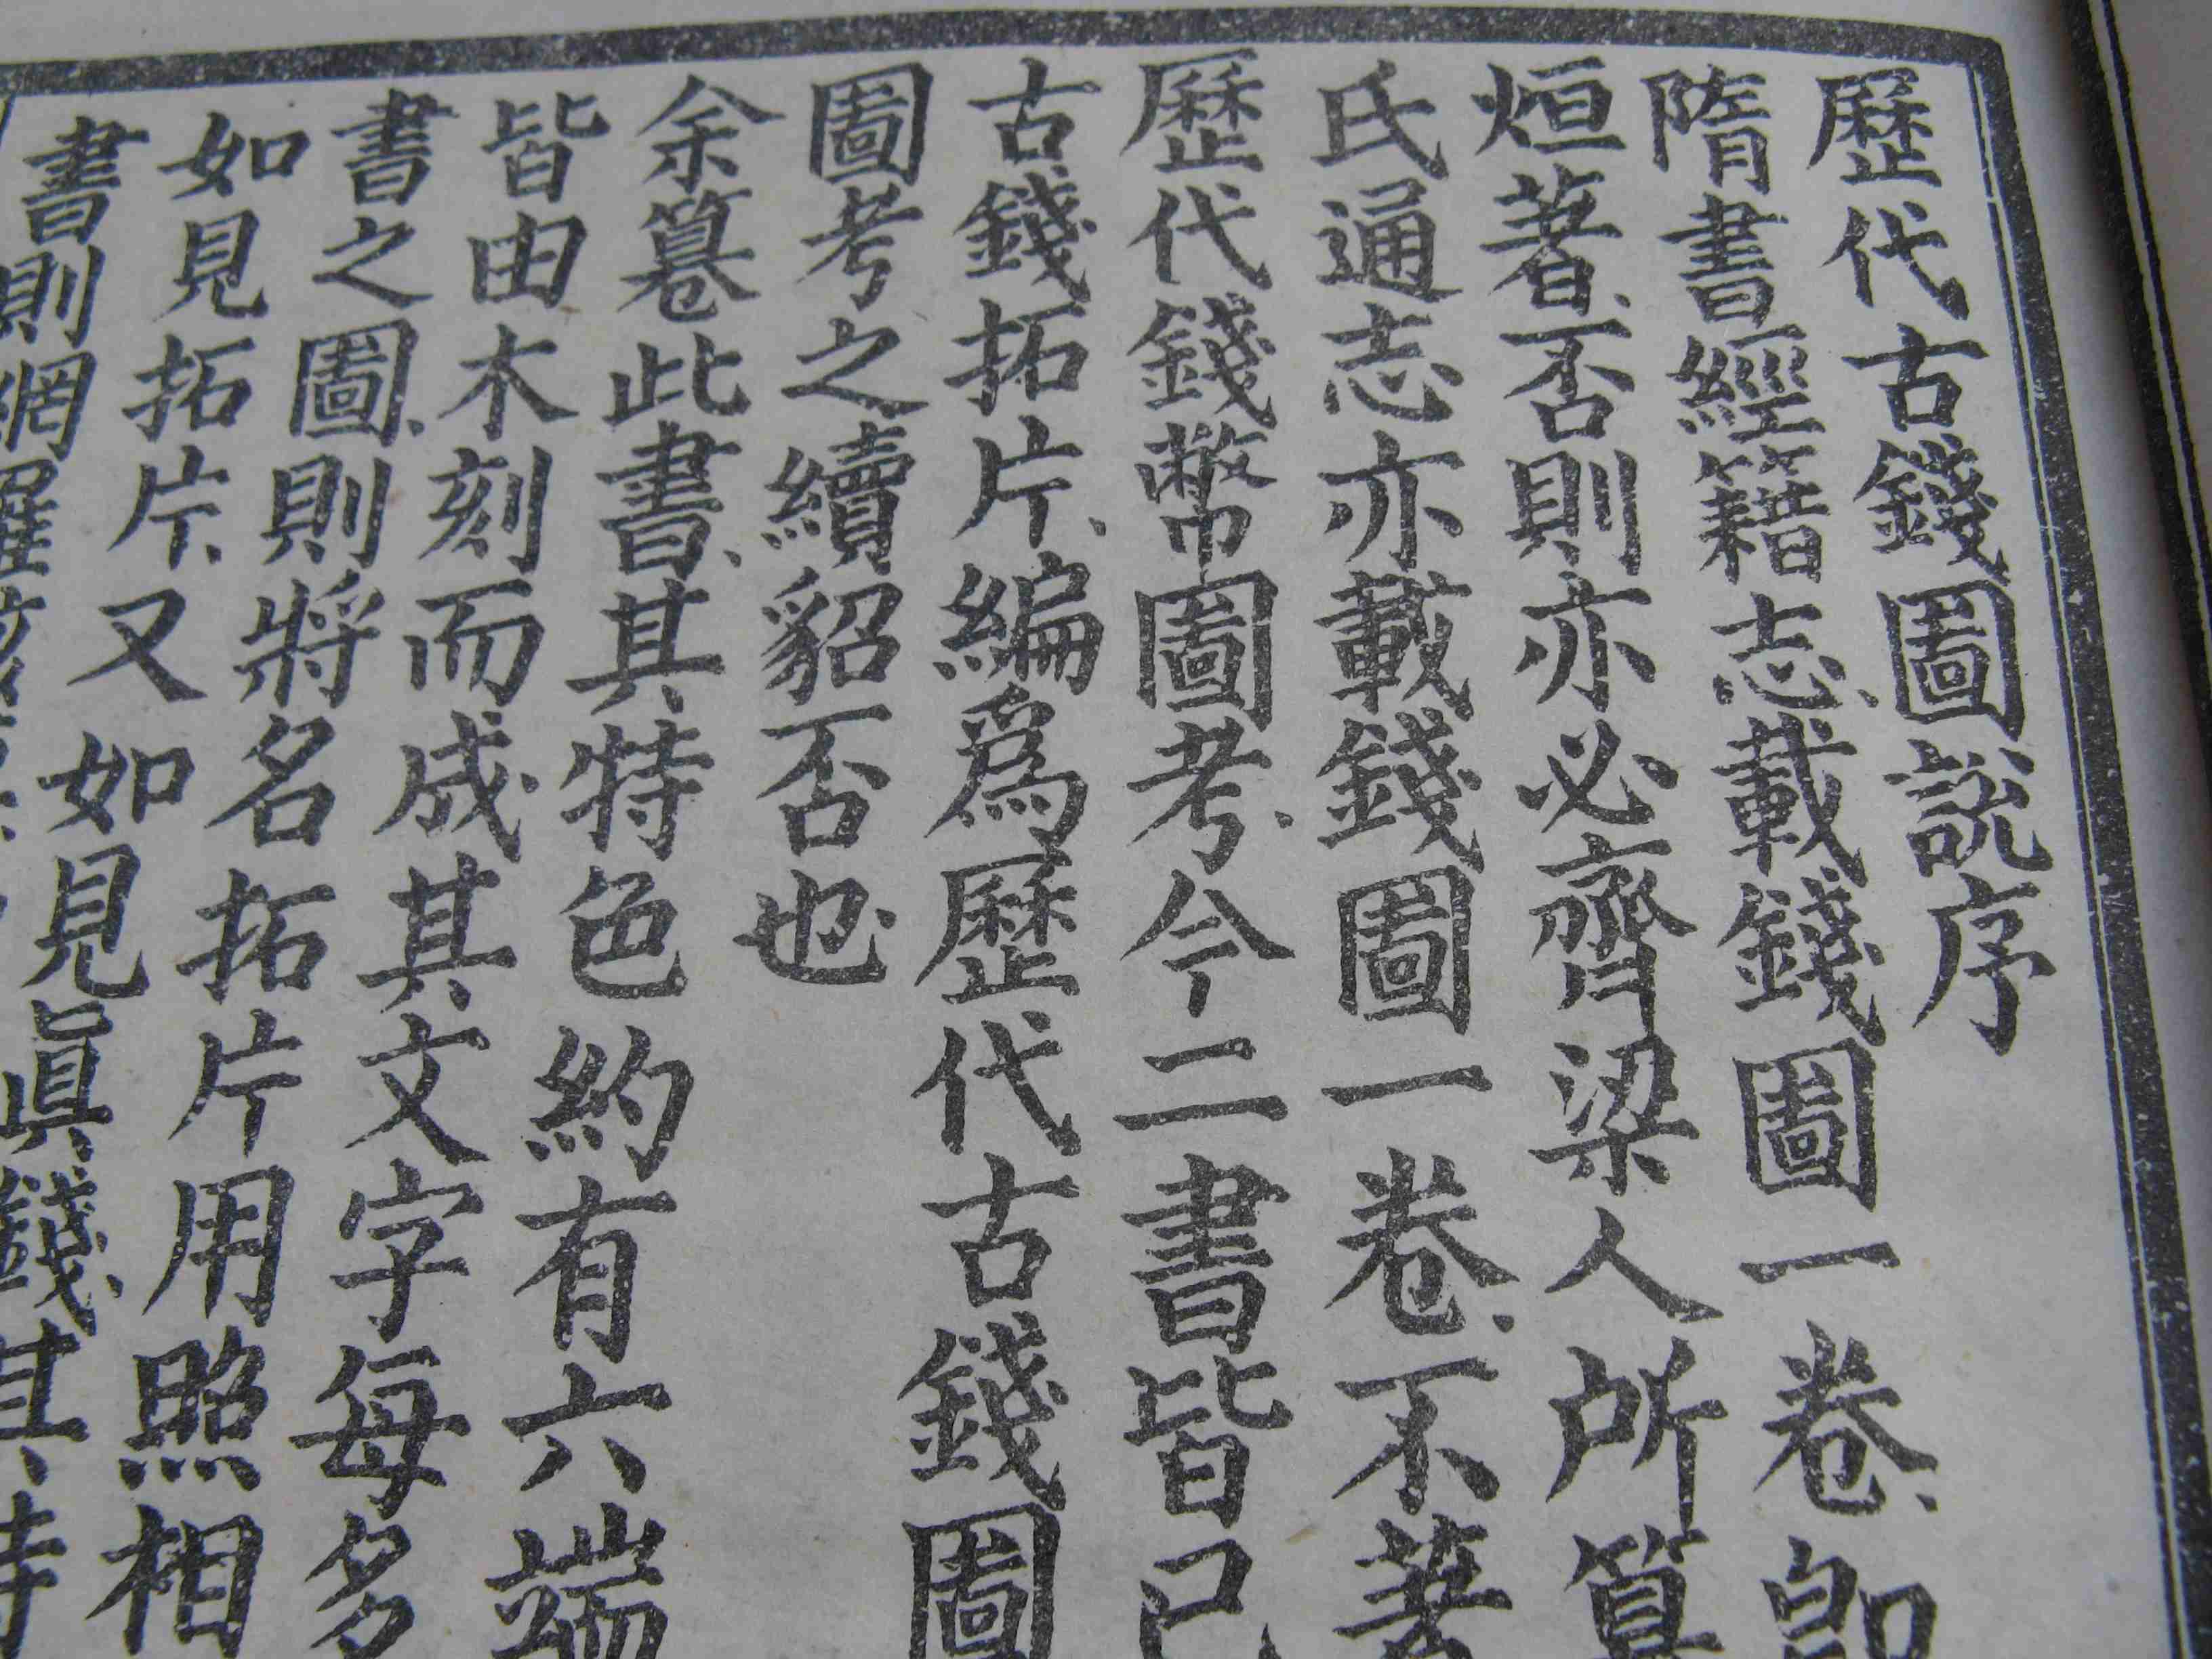 歷代古錢圖説序
隋書經籍志、載錢圖一卷、卽
烜著、否則亦必齊梁人所
氏通志亦載錢圖一卷、不著
歷代錢幣圖考、今二書皆已
古錢拓片、編爲歷代古錢圖
圖考之續貂否也、
余篹此書、其特色約有六端
皆由木刻而成、其文字每多
書之圖、則將名拓片用照相
如見拓片、又如見眞錢、其特
書則網羅